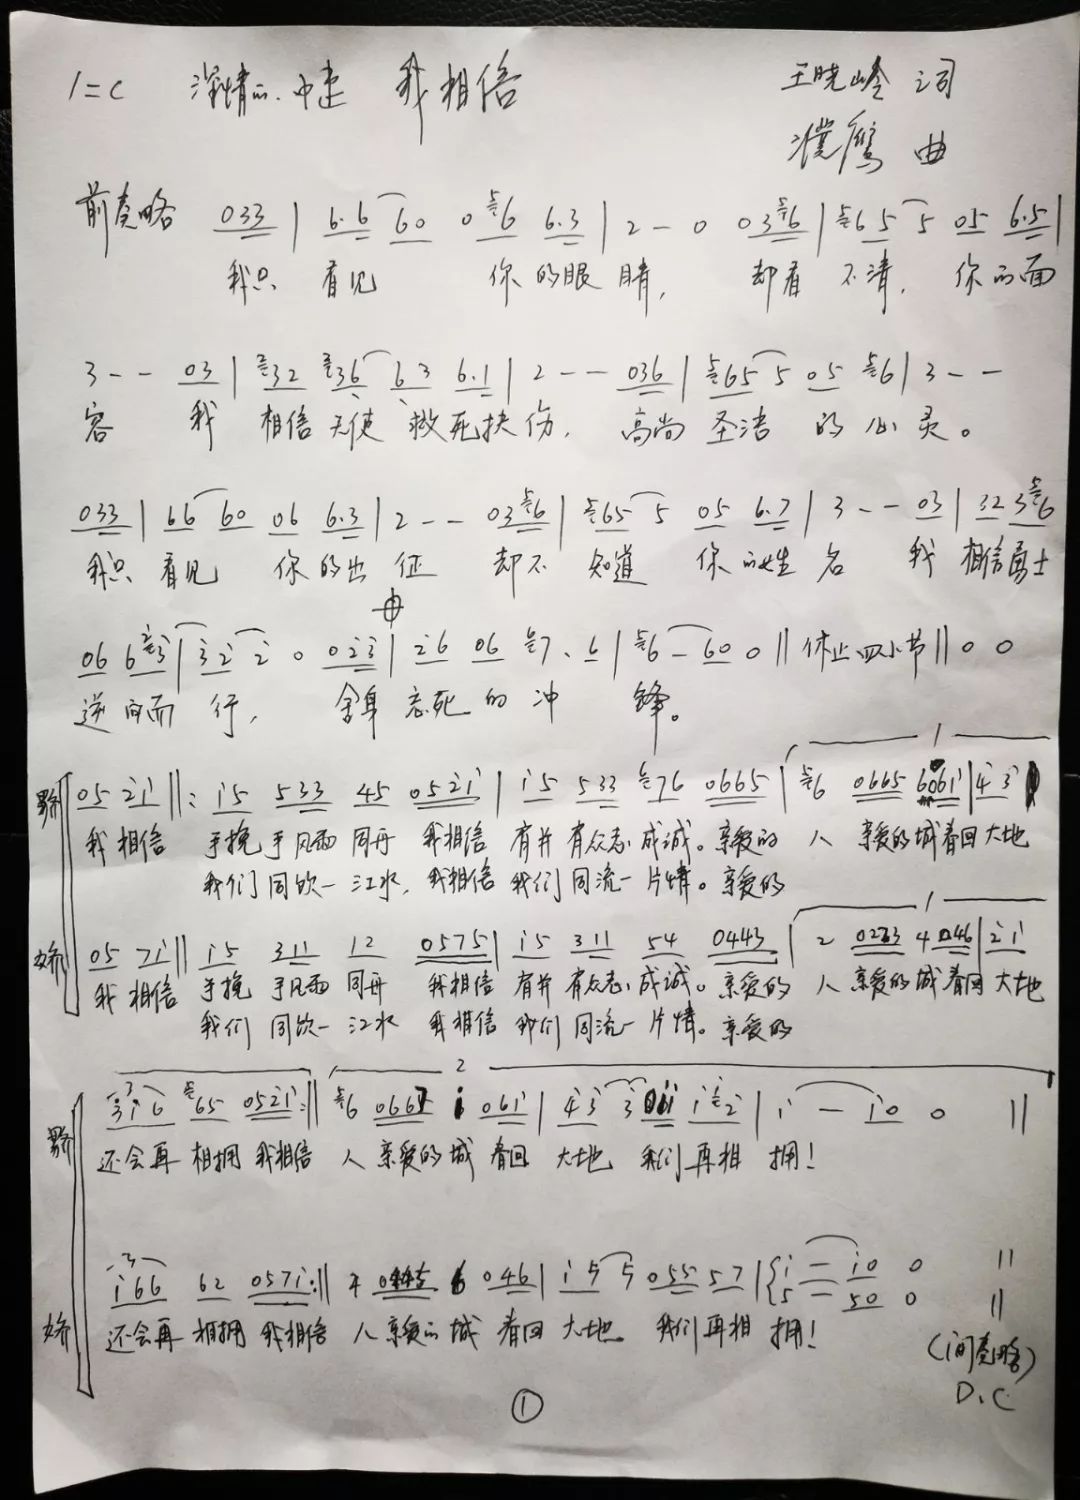 1=C 深情的.中速 我相信 王晓岭 词
濮鹰 曲
前奏略 033 | 6.6 60 0 6 6.3 | 2 - 0 036 | 65 5 05 6.5 |
我只 看见 你的眼睛, 却看 不清, 你的面
3 - - 03 | 32 36 63 6.1 | 2 - - 036 | 65 5 05 6 | 3 - -
容 我 相信 天使 救死扶伤, 高尚 圣洁 的心灵。
033 | 66 60 06 6.3 | 2 - - 036 | 65 5 05 6.7 | 3 - - 03 | 32 36
我只 看见 你的出征 却不 知道 你的姓名 我 相信勇士
06 6 3 | 3 2 2 0 023 | 26 06 7. 6 | 6 - 60 0 || 休止四小节 || 0 0
逆向而 行, 舍身 忘死 的 冲 锋。
1
05 21 ||: 15 533 45 0521 | 15 533 76 0665 | 6 0665 6061 | 43
我 相信 手挽 手风雨 同舟 我相信 有并 有众志 成诚。亲爱的 人 亲爱的城春回大地
我们 同饮一 江水, 我相信 我们 同流一 片情。亲爱的
1
05 71 || 15 311 12 0575 | 15 311 54 0443 | 2 0223 4 046 | 21
我 相信 手挽 手风雨 同舟 我相信 有并 有众志 成诚。亲爱的 人 亲爱的城春回 大地
我们 同饮一 江水 我相信 我们 同流一 片情。亲爱的
2
3 316 65 0521 :|| 6 066 061 | 43 3 1 2 | 1 - 10 0 ||
还会再 相拥 我相信 人 亲爱的城 春回 大地 我们 再相 拥!
3 166 62 0571 :|| 4 046 | 15 5 055 57 | 1 - 10 0 ||
5 - 50 0 ||
还会再 相拥 我相信 人 亲爱的城 春回 大地 我们再相 拥!
(间奏略)
D.C
①